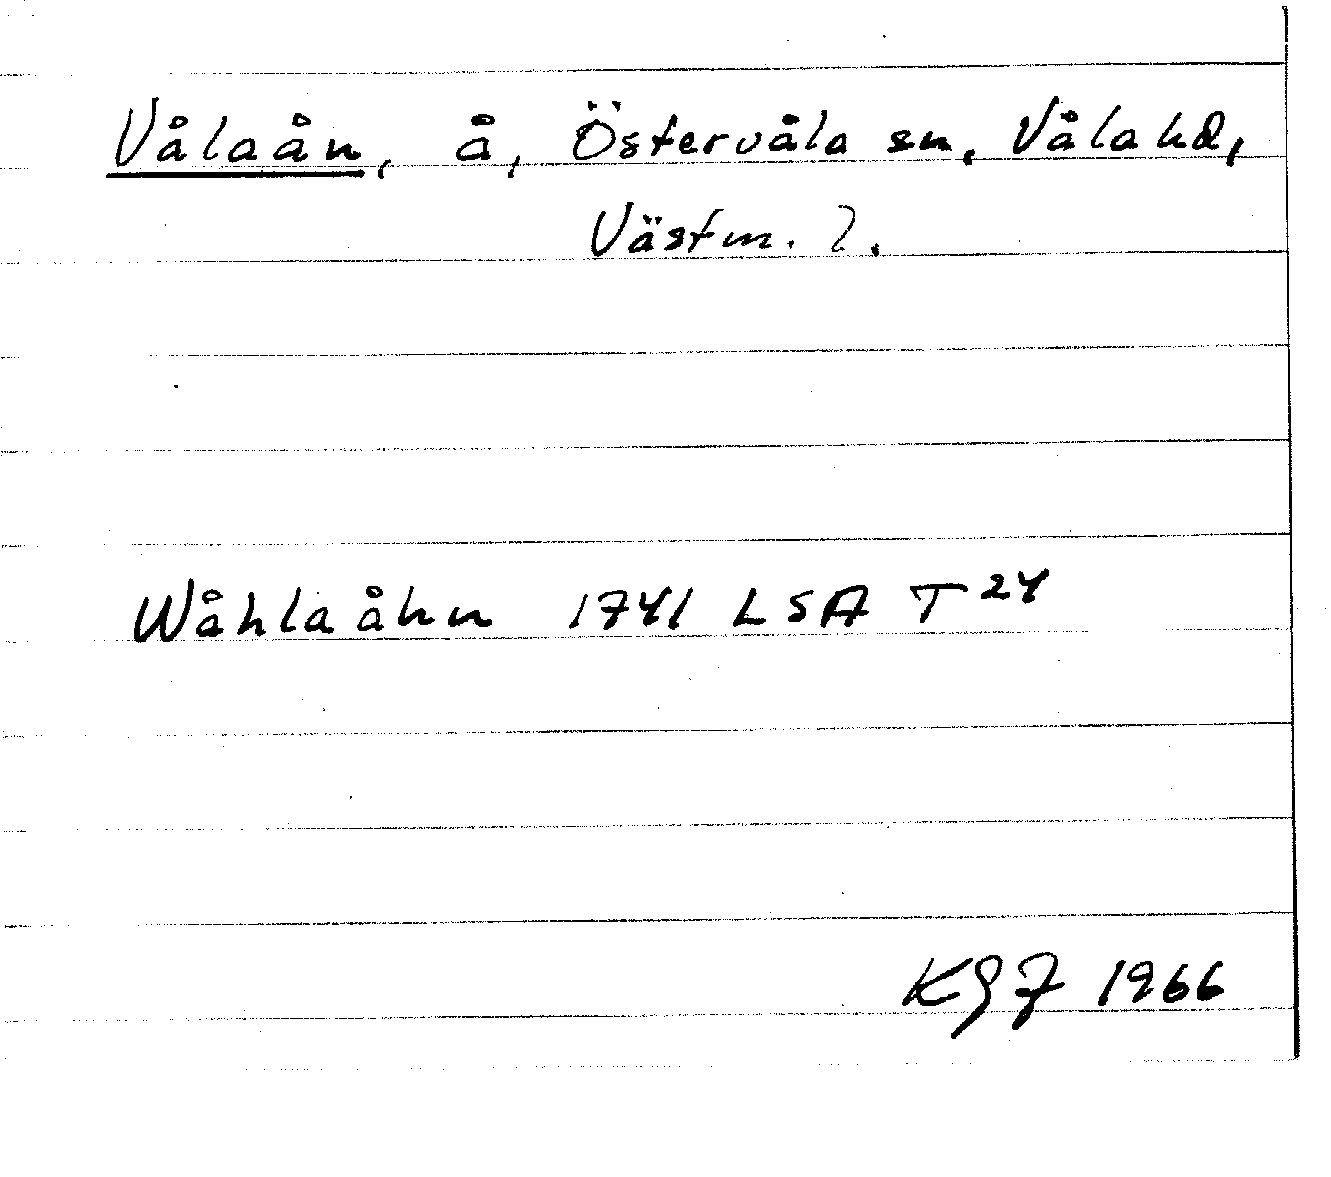 Vålaån, å, Östervåla sn, Våla hd,
Västm. l.
Wåhla åhn 1741 LSA T 24
KGF 1966